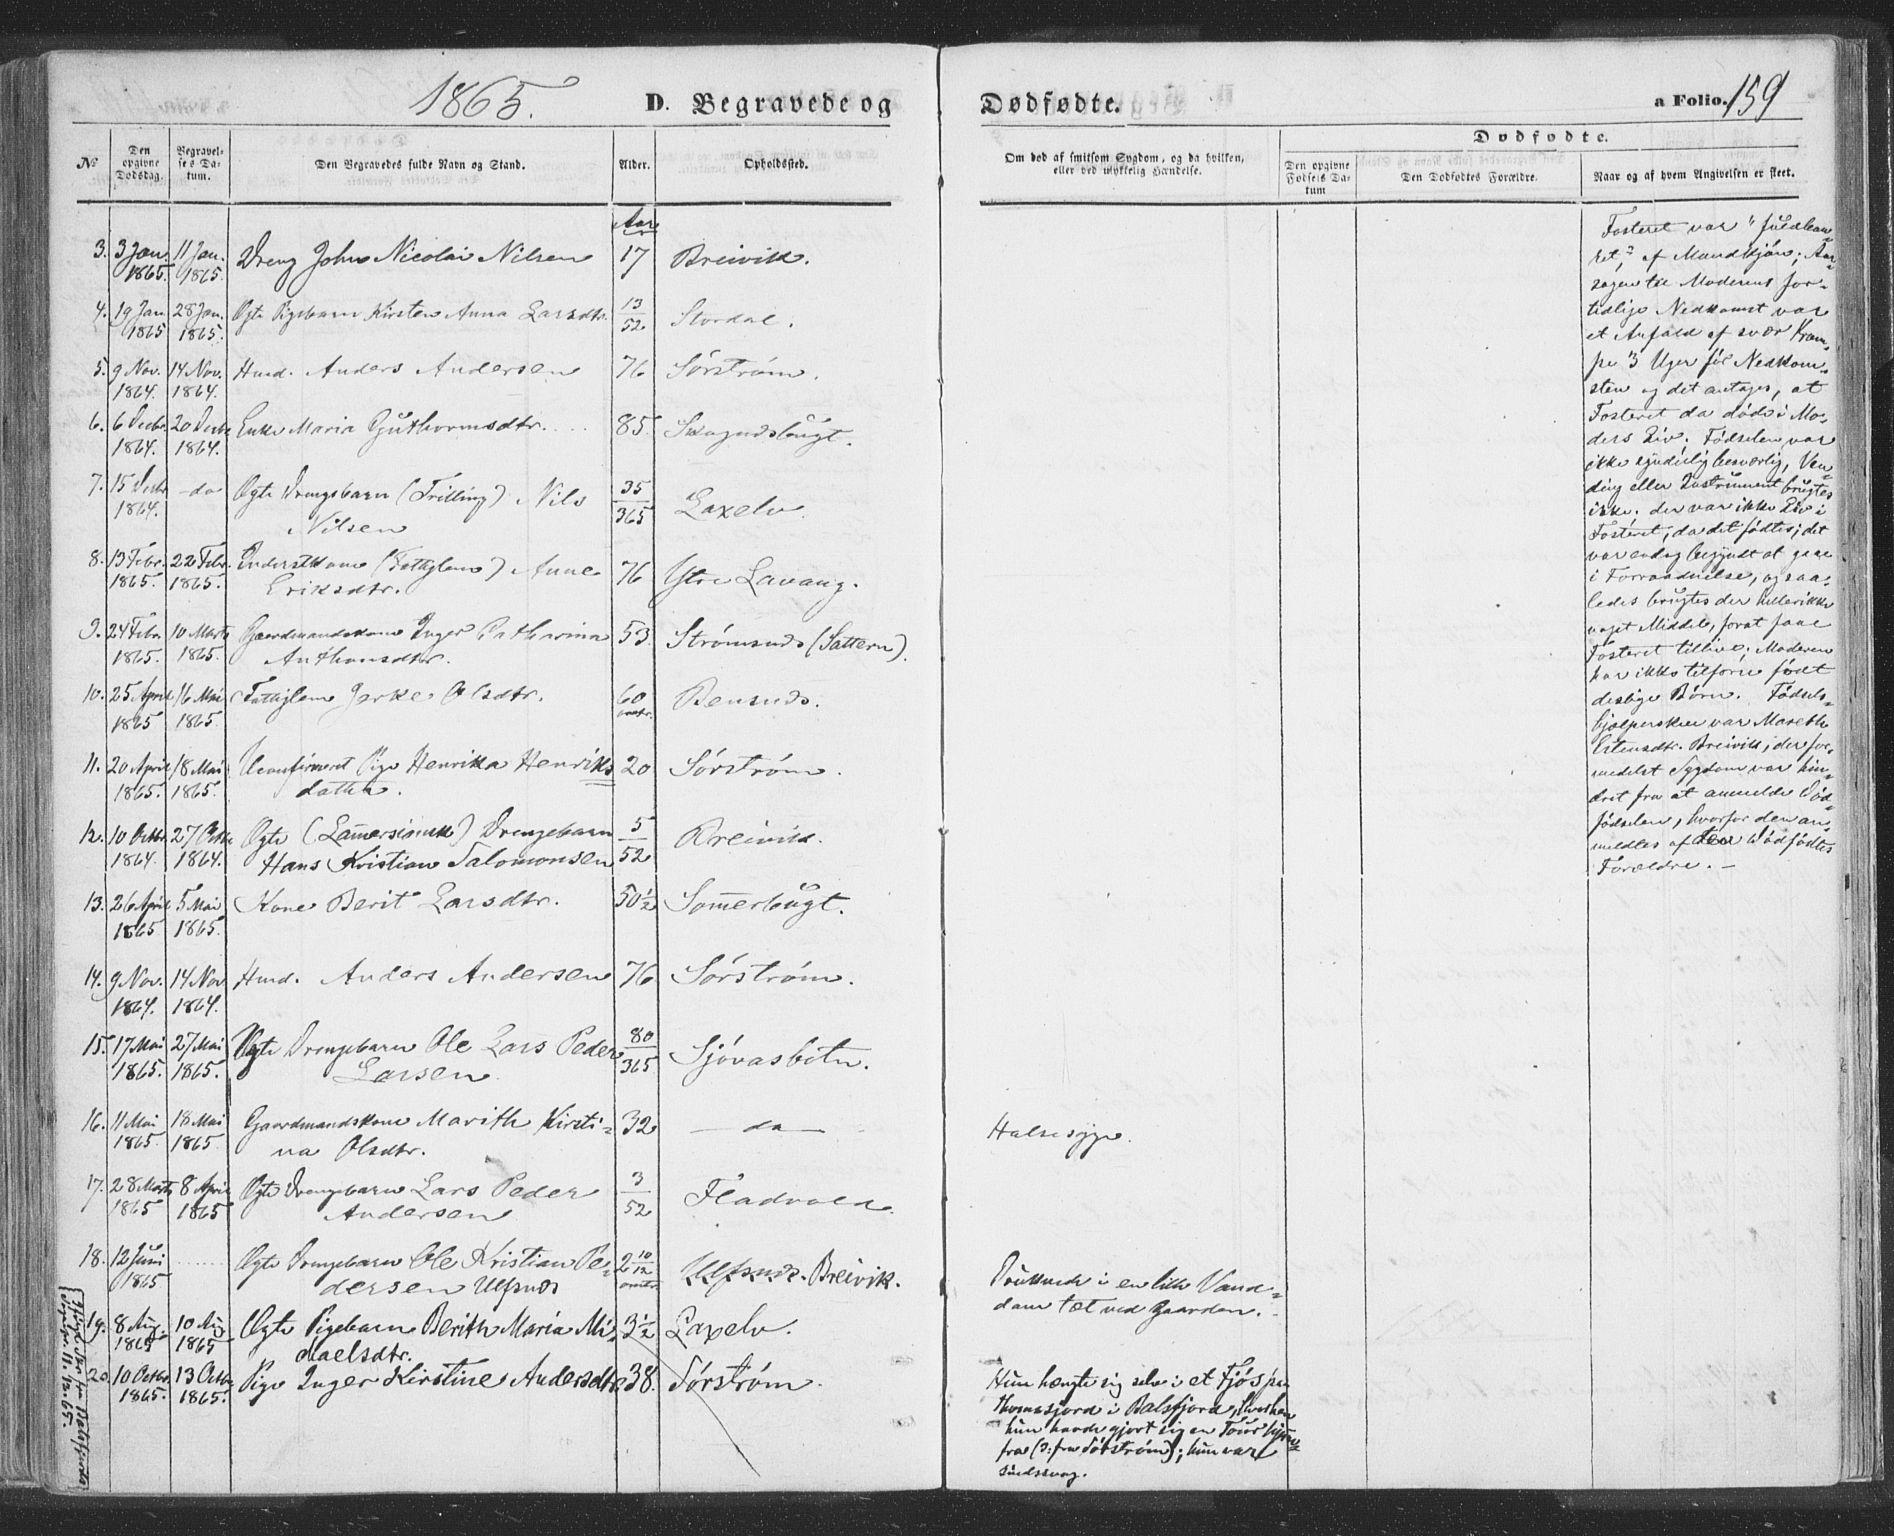 1865.
D. Begravede og Dødfødte.
a Folio. 159
No
Den opgivne Dødsdag.
Begravelses Datum.
Den Begravedes fulde Navn og Stand.
Alder.
Opholdssted.
Om død af smitsom Sygdom, og da hvilken, eller ved ulykkelig Hændelse.
Dødfødte.
Den opgivne Fødsels Datum
Den Dødfødtes Forældre.
Naar og af hvem Angivelsen er skeet.
Aar
3. 3 Jan. 1865. 11 Jan. 1865. Dreng John Nicolai Nilsen 17 Breivik.
4. 19 Jan 1865 28 Jan. 1865. Ægte Pigebarn Kirsten Anna Larsdtr. 13/52 Stordal.
5. 9 Nov. 1864. 14 Nov. 1864. Husd. Anders Andersen 76 Sørstrøm.
6. 6 Decbr. 1864. 20 Decbr 1864. Enke Maria Guthormsdtr. 85.
7. 15 Decbr 1864. - do Ægte Drengebarn (Trilling) Nils
Nilsen 35/365 Laxelv.
8. 13 Febr. 1865. 22 Febr. 1865. (Fattiglem) Anne
Eriksdtr. 76 Ytre Lavang.
9. 24 Febr. 1865. 10 Marts 1865. Gaardmandskone Inger Catharina
Anthonsdtr. 53. Strømsnds (Sattern).
10. 25 April 1865 16 Mai 1865. Fattiglem Olsdtr. 60 omtr. Bensnds.
11. 20 April 1865. 18 Mai 1865. Uconfirmeret Pige Henrikka Henriks
datter. 20 Sørstrøm.
12. 10 Octbr. 1864. 27 Octbr 1864. Ægte Drengebarn
Hans Kristian Salomonsen 5/52 Breivik.
13. 26 April 1865 5 Mai 1865. Kone Berit Larsdtr. 50 1/2 Somerbugt.
14. 9 Nov. 1864. 14 Nov 1864. Husd. Anders Andersen 76 Sørstrøm.
15. 17 Mai 1865. 27 Mai 1865. Ægte Drengebarn Ole Lars Peder
Larsen 80/365 Sjøvasbotn.
16. 11 Mai 1865. 18 Mai 1865 Gaardmandskone Marith Kirsti-
na Olsdtr. 32 — do — Halsesyge.
17. 28 Marts 1865 8 April 1865 Ægte Drengebarn Lars Peder
Andersen 3/52 Fladvold.
18. 12 Juni 1865 Ægte Drengebarn Ole Kristian Pe-
dersen Ulfsnds 2 10/12 omtr. Breivik. Druknede i en lille Vand-
dam tæt ved Gaarden.
19. 8 Aug. 1865 10 Aug 1865 Ægte Pigebarn Berith Maria Mi-
chaelsdtr. 3 1/2 Laxelv.
20. 10 Octbr. 1865. 13 Octbr 1865. Pige Inger Kirstine Andersdtr. 38. Sørstrøm. Hun hængte sig selv i et Fjøs paa
i Balsfjord, hvorhen
hun havde gjort sig en Tour hjemme-
fra (ɔ: fra Sørstrøm); hun var
sindssvag.
Fosteret var "fuldbaa-
ret," af Mandkjøn; Aar-
sagen til Moderens for-
tidlige Nedkomst var
et Anfald af svær Kram-
pe 3 Uger før Nedkom-
sten og det antages, at
Fosteret da døde i Mo-
ders Liv. Fødselen var
ikke synderlig besværlig, Ven-
ding eller Instrument brugtes
ikke. der var ikke Liv i
Fosteret, da det fødtes; det
var endog begyndt at gaae
i Forraadnelse, og saa-
ledes brugtes der heller ikke
noget Middel, forat faae
Fosteret tillive; Moderen
har ikke tilforn født
deslige Børn. Fødsels-
hjælpersken var Mareth
Estensdtr. Breivik, der for-
medelst Sygdom var hin-
dret fra at anmelde Død-
fødselen, hvorfor den an-
meldtes af den Dødfødtes
Forældre. —